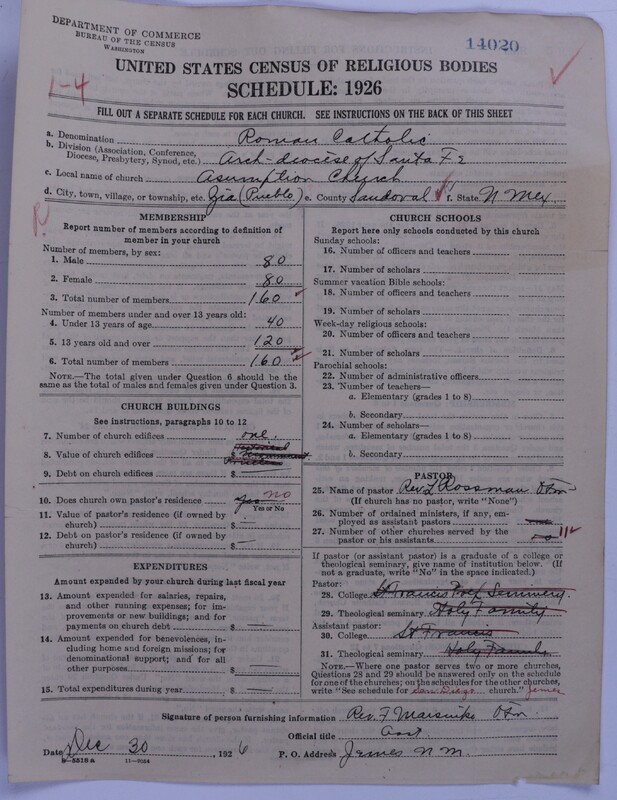 DEPARTMENT OF COMMERCE
BUREAU OF THE CENSUS
WASHINGTON
14020
UNITED STATES CENSUS OF RELIGIOUS BODIES
SCHEDULE: 1926
1-4
FILL OUT A SEPARATE SCHEDULE FOR EACH CHURCH. SEE INSTRUCTIONS ON THE BACK OF THIS SHEET
a. Denomination Roman Catholic
b. Division (Association, Conference, Diocese, Presbytery, Synod, etc.) Arch-diocese of Santa Fe
c. Local name of church Asumption Church
d. City, town, village, or township, etc. Zia (Pueblo) e. County Sandoval f. State N Mex
R
MEMBERSHIP
Report number of members according to definition of
member in your church
Number of members, by sex:
1. Male 80
2. Female 80
3. Total number of members 160
Number of members under and over 13 years old:
4. Under 13 years of age 40
5. 13 years old and over 120
6. Total number of members 160
NOTE.—The total given under Question 6 should be
same as the total of males and females given under Question 3.
CHURCH BUILDINGS
See instructions, paragraphs 10 to 12
7. Number of church edifices one.
8. Value of church edifices
9. Debt on church edifices $
10. Does church own pastor's residence Yes no
Yes or No
11. Value of pastor's residence (if owned by
church) $
12. Debt on pastor's residence (if owned by
church) $—
EXPENDITURES
Amount expended by your church during last fiscal year
13. Amount expended for salaries, repairs,
and other running expenses; for im-
provements or new buildings; and for
payments on church debt $ —
14. Amount expended for benevolences, in-
cluding home and foreign missions; for
denominational support; and for all
other purposes $ —
15. Total expenditures during year $ —
CHURCH SCHOOLS
Report here only schools conducted by this church
Sunday schools:
16. Number of officers and teachers
17. Number of scholars
Summer vacation Bible schools:
18. Number of officers and teachers
19. Number of scholars
Week-day religious schools:
20. Number of officers and teachers
21. Number of scholars
Parochial schools:
22. Number of administrative officers
23. Number of teachers—
a. Elementary (grades 1 to 8)
b. Secondary
24. Number of scholars—
a. Elementary (grades 1 to 8)
b. Secondary
PASTOR
25. Name of pastor Rev. L Rossman Ofm
(If church has no pastor, write "None")
26. Number of ordained ministers, if any, em-
ployed as assistant pastors
27. Number of other churches served by the
pastor or his assistants
If pastor (or assistant pastor) is a graduate of a college or
theological seminary, give name of institution below. (If
not a graduate, write "No" in the space indicated.)
Pastor:
28. College St Francis Prep Seminery.
29. Theological seminary Holy Family
Assistant pastor:
30. College St Francis
31. Theological seminary Holy Family
NOTE.—Where one pastor serves two or more churches,
Questions 28 and 29 should be answered only on the schedule
for one of the churches; on the schedules for the other churches,
write "See schedule for San Diego church." Jemes
Signature of person furnishing information Rev. F Ofm.
Official title Asst
Date Dec 30 1926 P. O. Address Jemes N M.
8-5518 a 11-9584